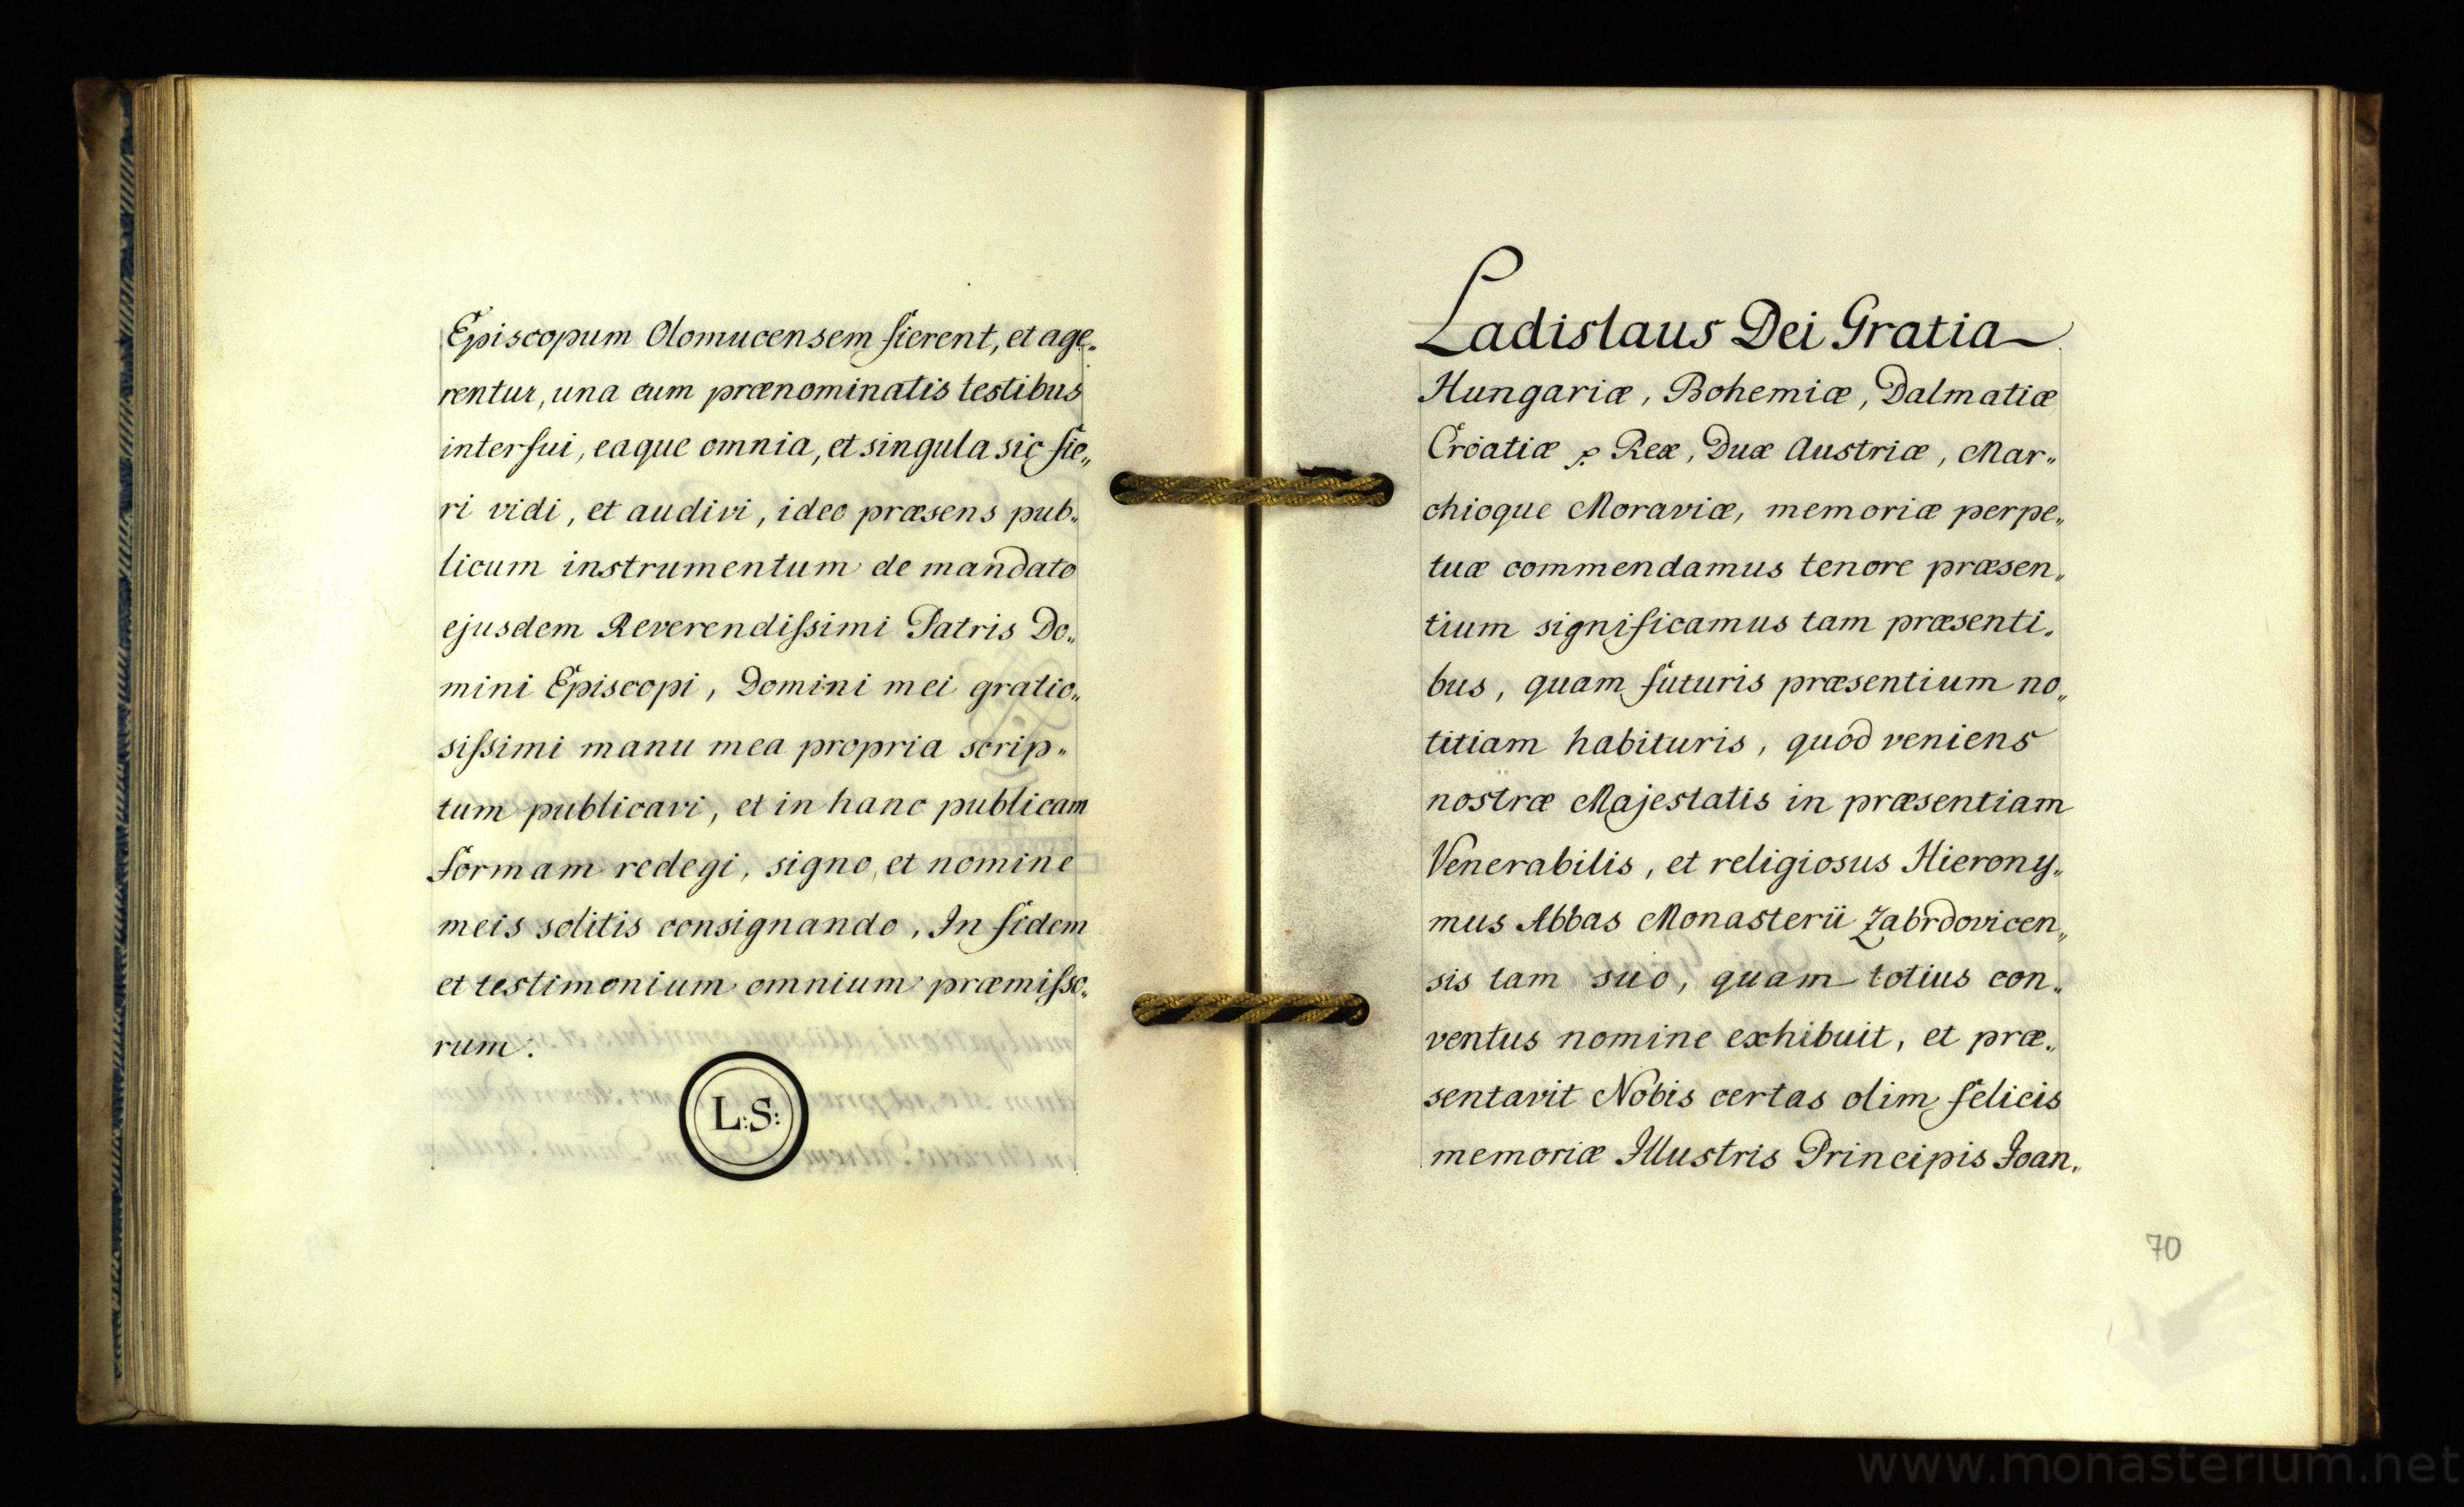 Episcopum Olomucensem fierent, et age„
rentur, una cum prænominatis testibus
interfui, eaque omnia, et singula sic fie„
ri vidi, et audivi, ideo præsens pub„
licum instrumentum de mandato
ejusdem Reverendiſsimi Patris Do„
mini Episcopi, Domini mei gratio„
siſsimi manu mea propria scrip„
tum publicavi, et in hanc publicam
formam redegi, signo, et nomine
meis solitis consignando, In fidem
et testimonium omnium præmiſso„
rum.
L:S:
Ladislaus Dei Gratia
Hungariæ, Bohemiæ, Dalmatiæ
Croatiæ Rex, Dux Austriæ, Mar„
chioque Moraviæ, memoriæ perpe„
tuæ commendamus tenore præsen„
tium significamus tam præsenti„
bus, quam futuris præsentium no„
titiam habituris, quod veniens
nostræ Majestatis in præsentiam
Venerabilis, et religiosus Hierony„
mus Abbas Monasterii Zabrdovicen„
sis tam suo, quam totius con„
ventus nomine exhibuit, et præ„
sentavit Nobis certas olim felicis
memoriæ Illustris Principis Joan„
70
www.monasterium.net